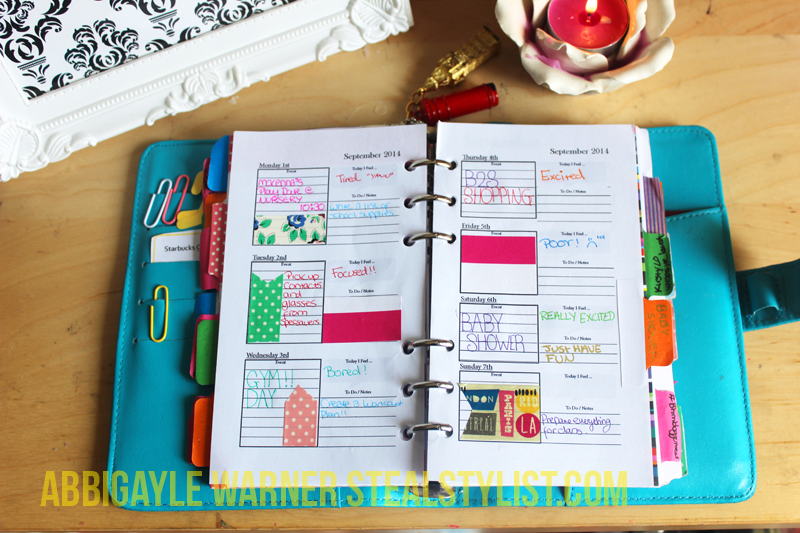 September 2014
Monday 1st
Event
Today I Feel ...
Play Date @
NURSERY
10:30
Tired
To Do / Notes
Write a list of
school supplies
Tuesday 2nd
Event
Today I Feel ...
Pick up
contacts
and
glasses
from
Specsavers
Focused!!
To Do / Notes
Wednesday 3rd
Event
Today I Feel ...
GYM!!
DAY
Bored!
To Do / Notes
Create a workout
Plan!!
September 2014
Thursday 4th
Event
Today I Feel ...
B2S
SHOPPING
Excited
To Do / Notes
Friday 5th
Today I Feel ...
Poor!
To Do / Notes
Saturday 6th
Event
Today I Feel ...
BABY
SHOWER
REALLY EXCITED
To Do / Notes
JUST HAVE
FUN
Sunday 7th
Today I Feel ...
NDON
PARIS
LA
To Do / Notes
Prepare everything
for class
Starbucks
ABBIGAYLE WARNER STEALSTYLIST.COM